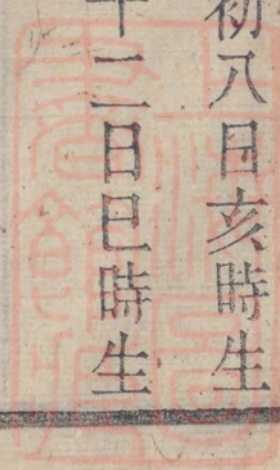 初八日亥時生
十二日巳時生